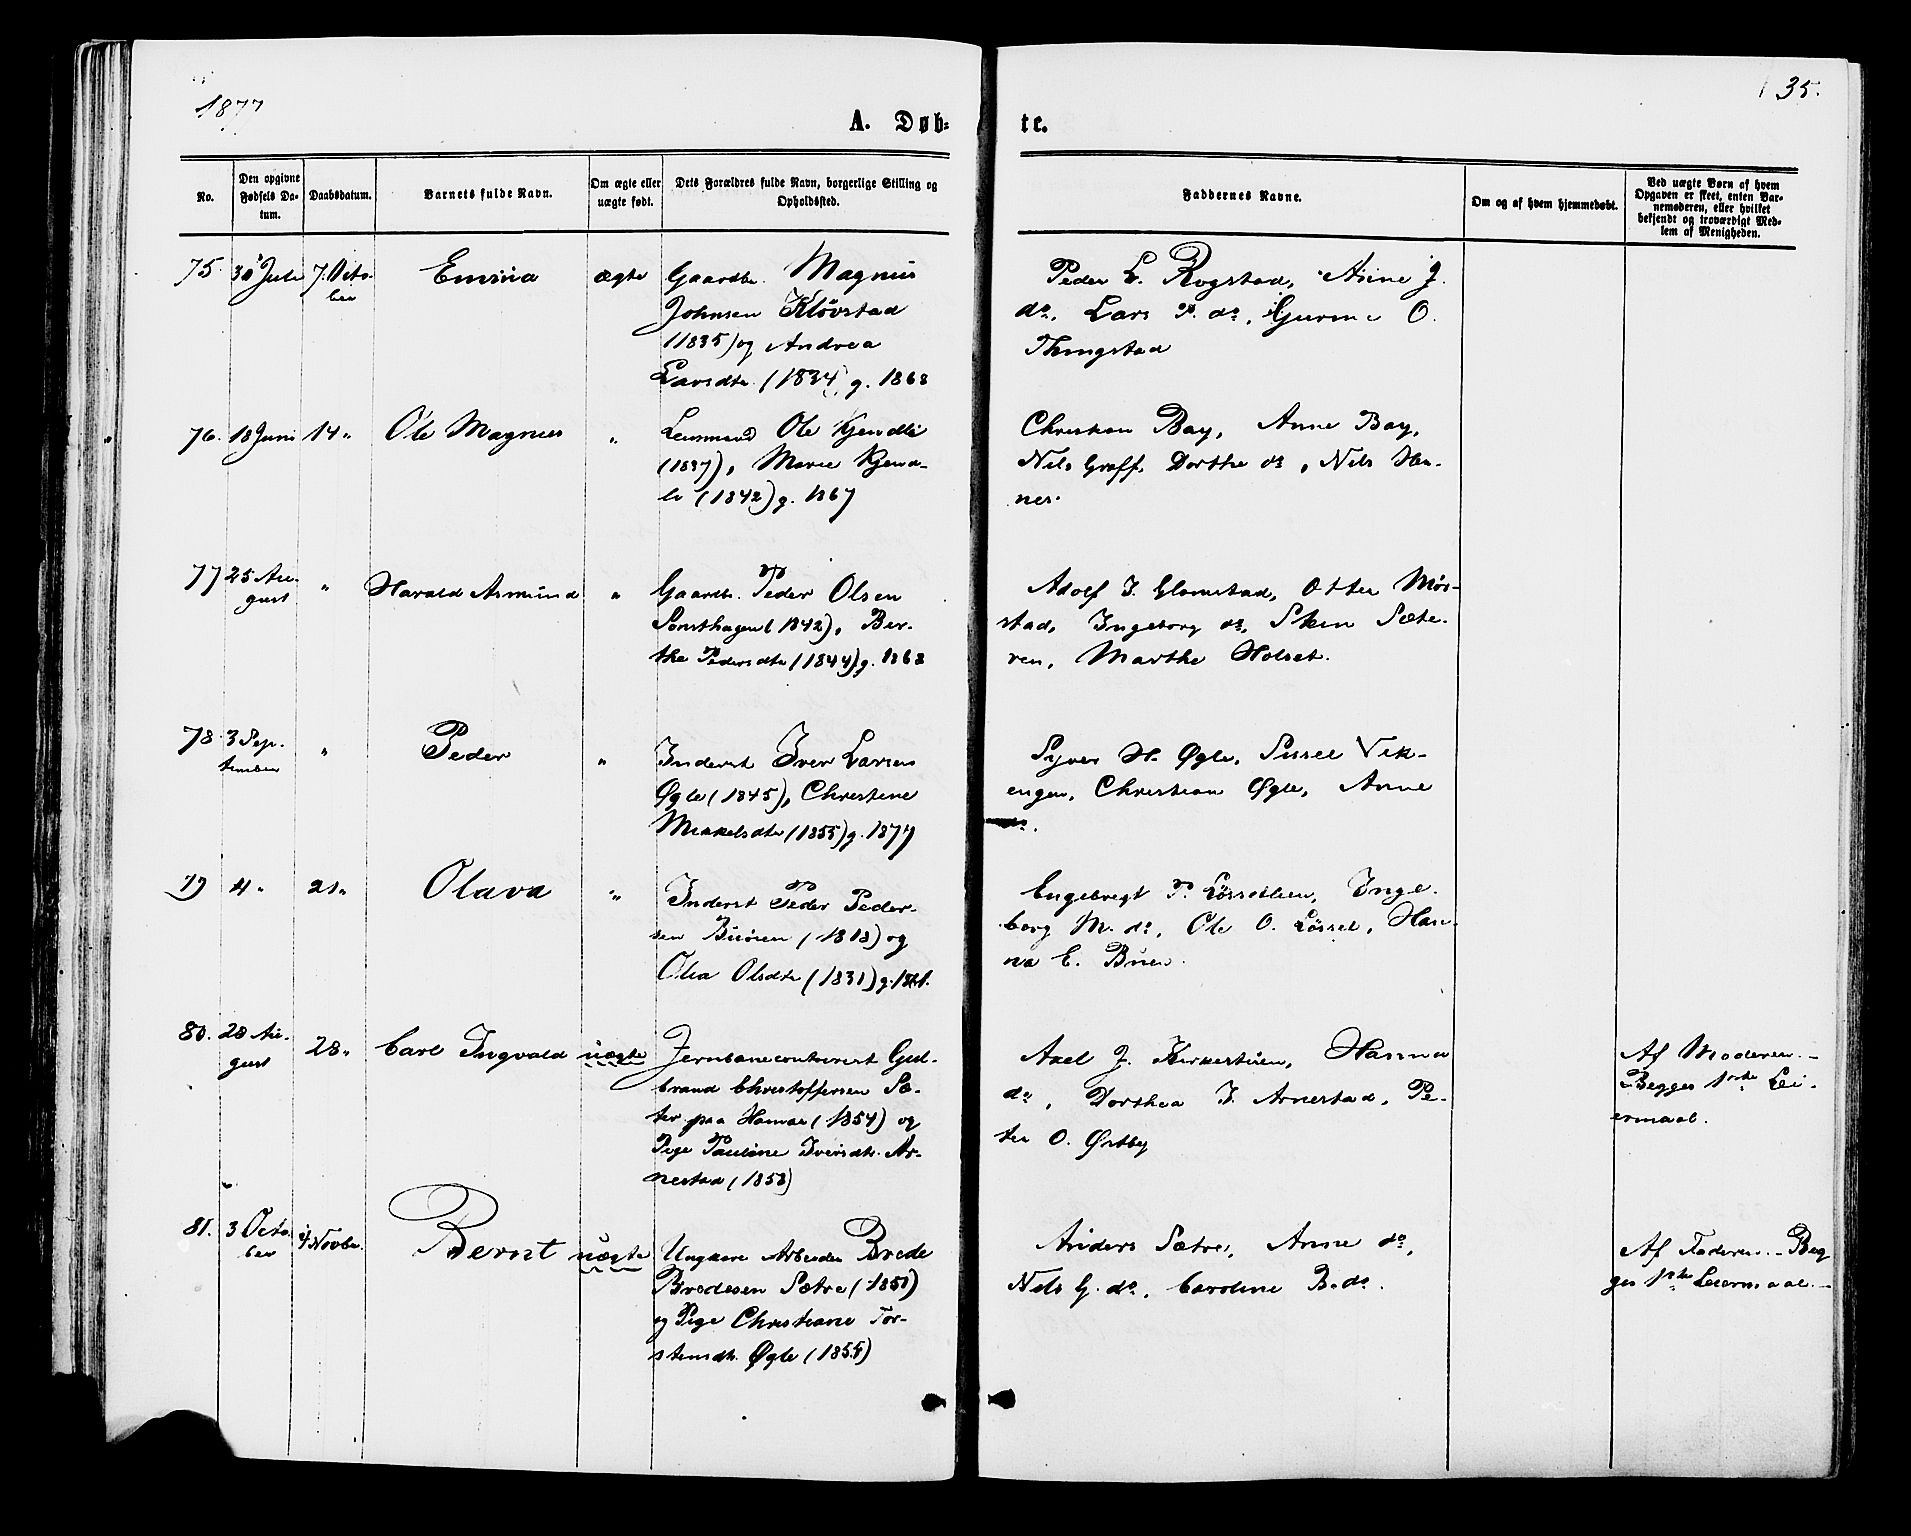 1877
35.
A. Døb-
te.
No.
Den opgivne
Fødsels Da-
tum.
Daabsdatum.
Barnets fulde Navn.
Om ægte eller
uægte født.
Dets Forældres fulde Navn, borgerlige Stilling og
Opholdssted.
Faddernes Navne.
Om og af hvem hjemmedøbt.
Ved uægte Børn af hvem
Opgaven er skeet, enten Bar-
nemoderen, eller hvilket
bekjendt og troværdigt Med-
lem af Menigheden.
75. 30 Juli 7. Octo-
ber
Emma
ægte
Gaardbr. Magnus
Johnsen Kløvstad
(1835) og Andrea
Larsdtr. (1834) g. 1868
Peder L. Rogstad, Anne J.
do, Lars P. do, Gurine O.
Thingstad
76. 18 Juni 14 "
Ole Magnus
"
Lensmand Ole Kjendli
(1837), Marie Kjend-
li (1842) g. 1867
Christian Bay, Anne Bay,
Nils Graff, Dorthe do, Nils Ha-
nes.
77 25 Au-
gust "
Harald Asmund
"
Gaardbr. Peder Olsen
Sonsthagen (1842), Ber-
the Pedersdtr (1844) g. 1868
Adolf J. Glomstad, Otter Mør-
stad, Ingeborg do, Sten Sæte-
ren, Marthe Holset.
78. 3 Sep-
tember "
Peder
"
Inderst Iver Larsen
Øgle (1845), Christine
Mikelsdtr (1855) g. 1877
Syver H. Øgle, Sissel Vik-
engen, Christian Øgle, Anne
do.
79 4 " 21 "
Olava
"
Inderst Peder Peder-
sen (1818) og
Olea Olsdtr (1831) g.
Engebregt P. Løssetlien, Inge-
borg M. do, Ole O. Løsset, Han-
na E. Buen.
80. 28 Au-
gust 28 "
Carl Ingvald
uægte
Jernbanecontorist Gud-
brand Christoffersen Sæ-
ter paa Hamar (1854) og
Pige Pauline Iversdtr. Ar-
nestad (1858)
Axel J. Kirkestuen, Hanna
do, Dorthea I. Arnestad, Pe-
ter O. Østby
Af Moderen. -
Begges 1ste Lei-
ermaal.
81. 3 Octo-
ber 4 Novbr.
Bernt
uægte
Ungkarl Arbeider Brede
Bredesen Sætre (1851)
og Pige Christiane Tor-
stensdtr. Øgle (1855)
Anders Sætre, Anne do,
Nils G. do, Caroline B. do.
Af Faderen. - Beg
ges 1ste Leiermaal. -